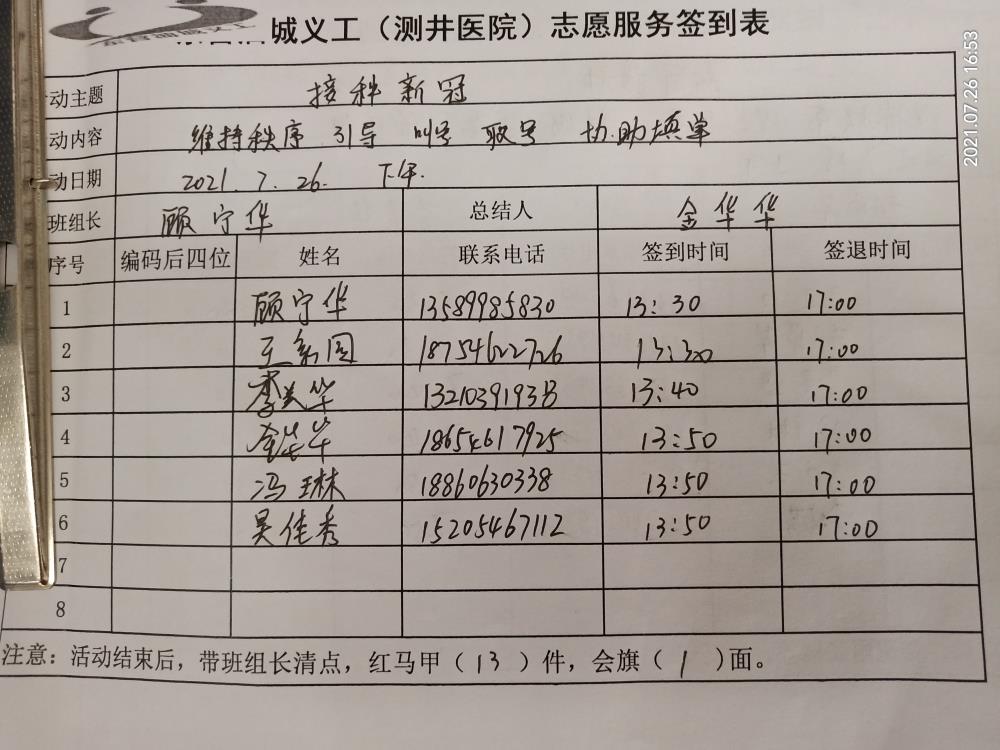 城义工（测井医院）志愿服务签到表
动主题 接种新冠
动内容 维持秩序 引导 叫号 取号 协助填单
动日期 2021.7.26. 下午.
班组长 顾宁华 总结人 金华华
序号 编码后四位 姓名 联系电话 签到时间 签退时间
1 顾宁华 13589985830 13:30 17:00
2 圆 18754622726 13:30 17:00
3 李美华 1321039193 13:40 17:00
4 金华华 18654617925 13:50 17:00
5 冯琳 18860630338 13:50 17:00
6 吴佳秀 15205467112 13:50 17:00
7
8
注意：活动结束后，带班组长清点，红马甲（13）件，会旗（1）面。
2021.07.26 16:53